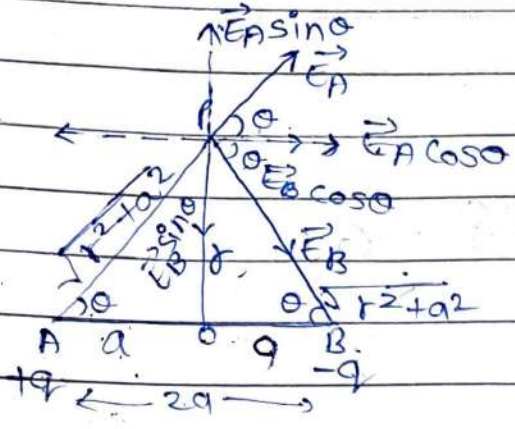 E⃗A sinθ
E⃗A
P θ
θ E⃗A cosθ
E⃗B cosθ
√r²+a²
E⃗B sinθ
r
E⃗B
θ θ √r²+a²
A a O a B
+q -q
2a